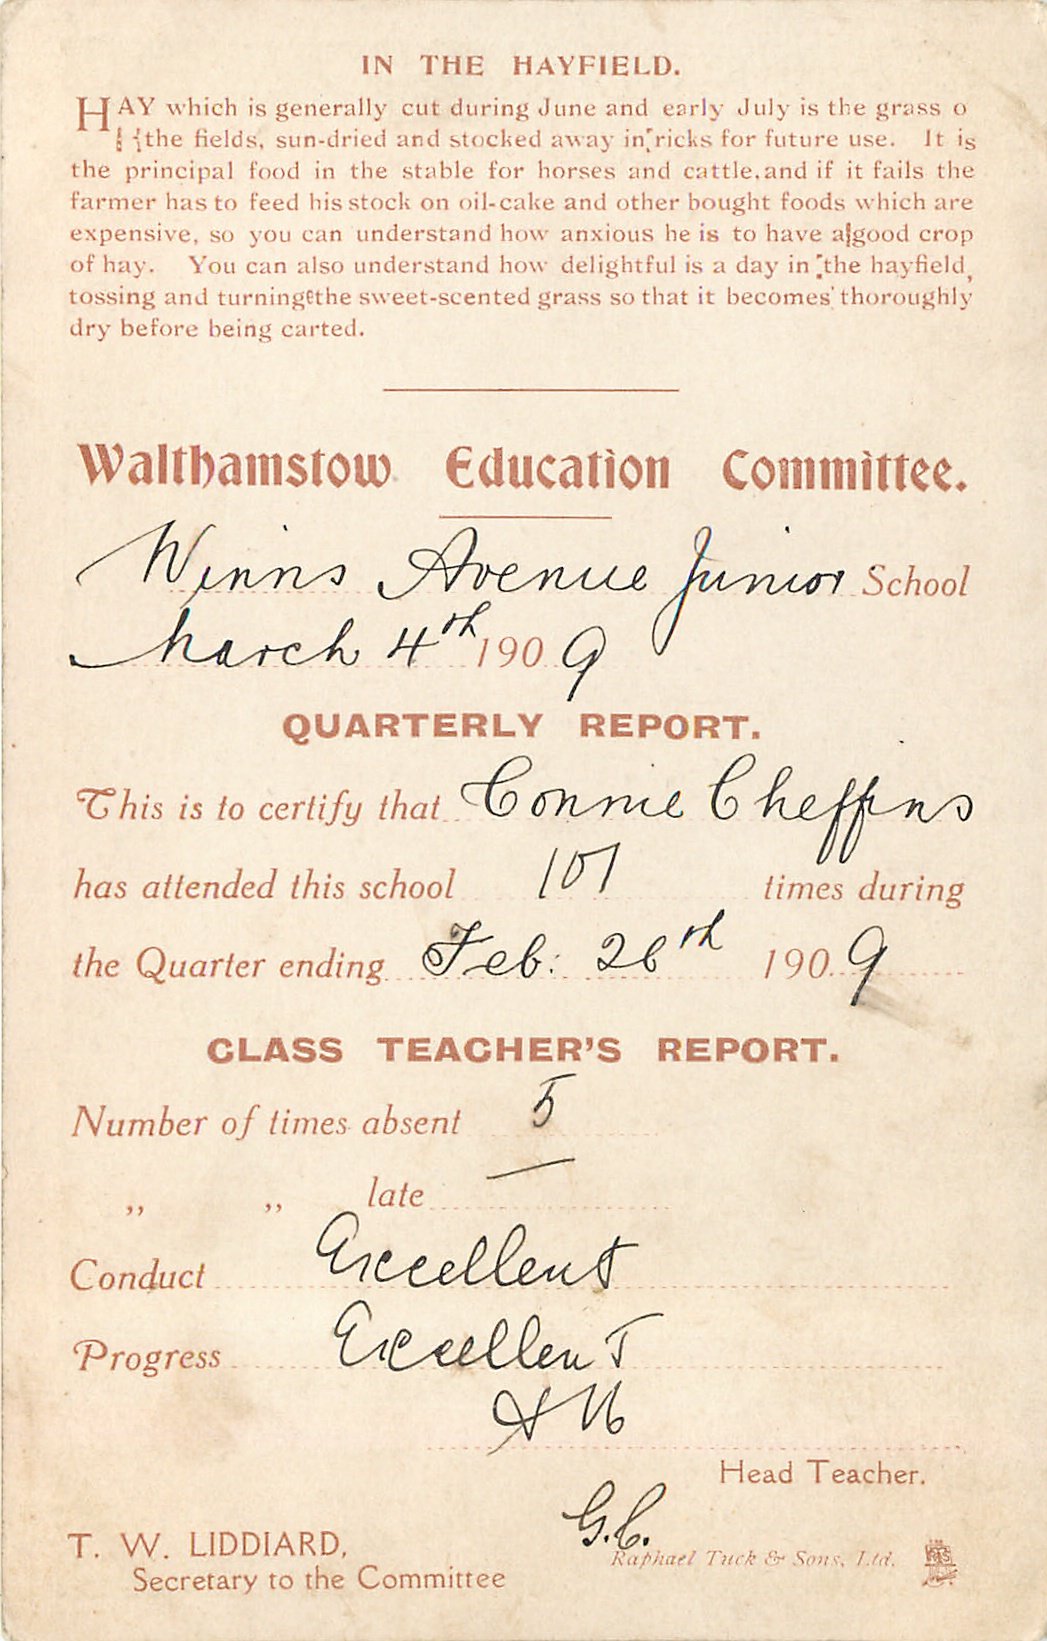 IN THE HAYFIELD.
HAY which is generally cut during June and early July is the grass o
the fields, sun-dried and stocked away in ricks for future use. It is
the principal food in the stable for horses and cattle, and if it fails the
farmer has to feed his stock on oil-cake and other bought foods which are
expensive, so you can understand how anxious he is to have a good crop
of hay. You can also understand how delightful is a day in the hayfield,
tossing and turning the sweet-scented grass so that it becomes thoroughly
dry before being carted.
Walthamstow Education Committee.
Winns Avenue Junior School
March 4th 1909
QUARTERLY REPORT.
This is to certify that Connie Cheffins
has attended this school 107 times during
the Quarter ending Feb: 26th 1909
CLASS TEACHER'S REPORT.
Number of times absent 5
„ „ late —
Conduct Excellent
Progress Excellent
Head Teacher.
G.C.
T. W. LIDDIARD,
Raphael Tuck & Sons, Ltd.
Secretary to the Committee